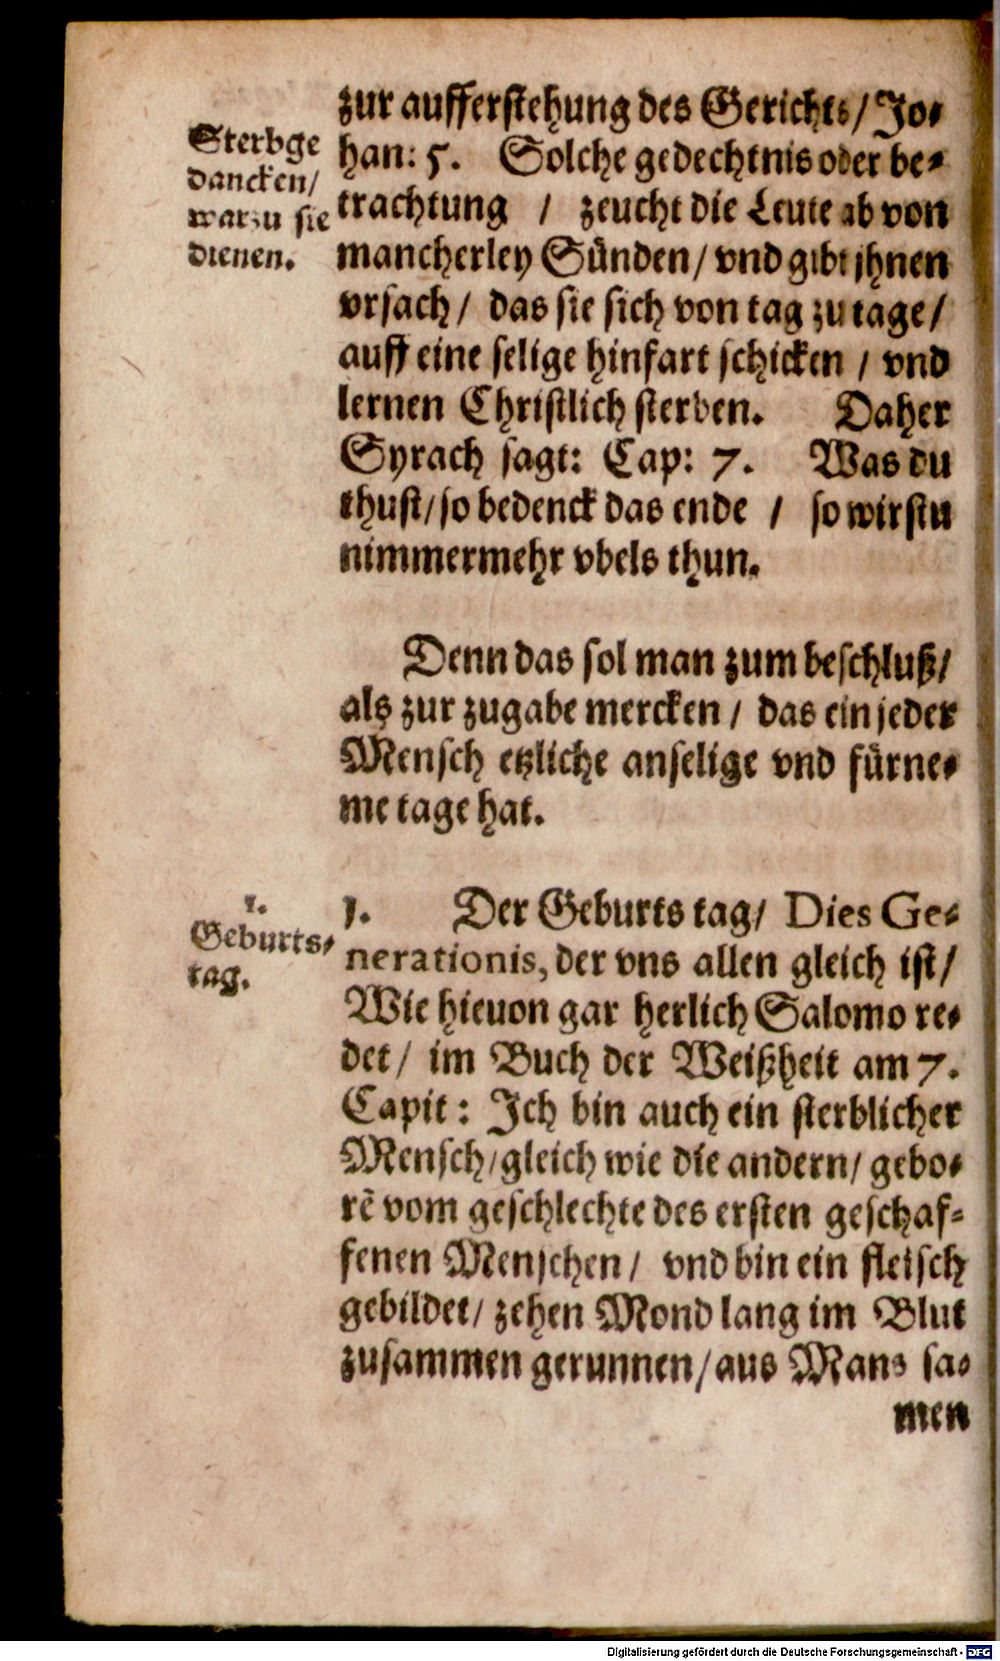 zur aufferstehung des Gerichts / Jo-
han: 5. Solche gedechtnis oder be-
trachtung / zeucht die Leute ab von
mancherley Sünden / vnd gibt jhnen
vrsach / das sie sich von tag zu tage /
auff eine selige hinfart schicken / vnd
lernen Christlich sterben. Daher
Syrach sagt: Cap: 7. Was du
thust / so bedenck das ende / so wirstu
nimmermehr vbels thun.
Sterbge
dancken /
warzu sie
dienen.
Denn das sol man zum beschluß /
als zur zugabe mercken / das ein jeder
Mensch etzliche anselige vnd fürne-
me tage hat.
1.
Geburts-
tag.
1. Der Geburts tag / Dies Ge-
nerationis, der vns allen gleich ist /
Wie hieuon gar herlich Salomo re-
det / im Buch der Weißheit am 7.
Capit: Ich bin auch ein sterblicher
Mensch / gleich wie die andern / gebo-
rẽ vom geschlechte des ersten geschaf-
fenen Menschen / vnd bin ein fleisch
gebildet / zehen Mond lang im Blut
zusammen gerunnen / aus Mans sa-
men
Digitalisierung gefördert durch die Deutsche Forschungsgemeinschaft - DFG